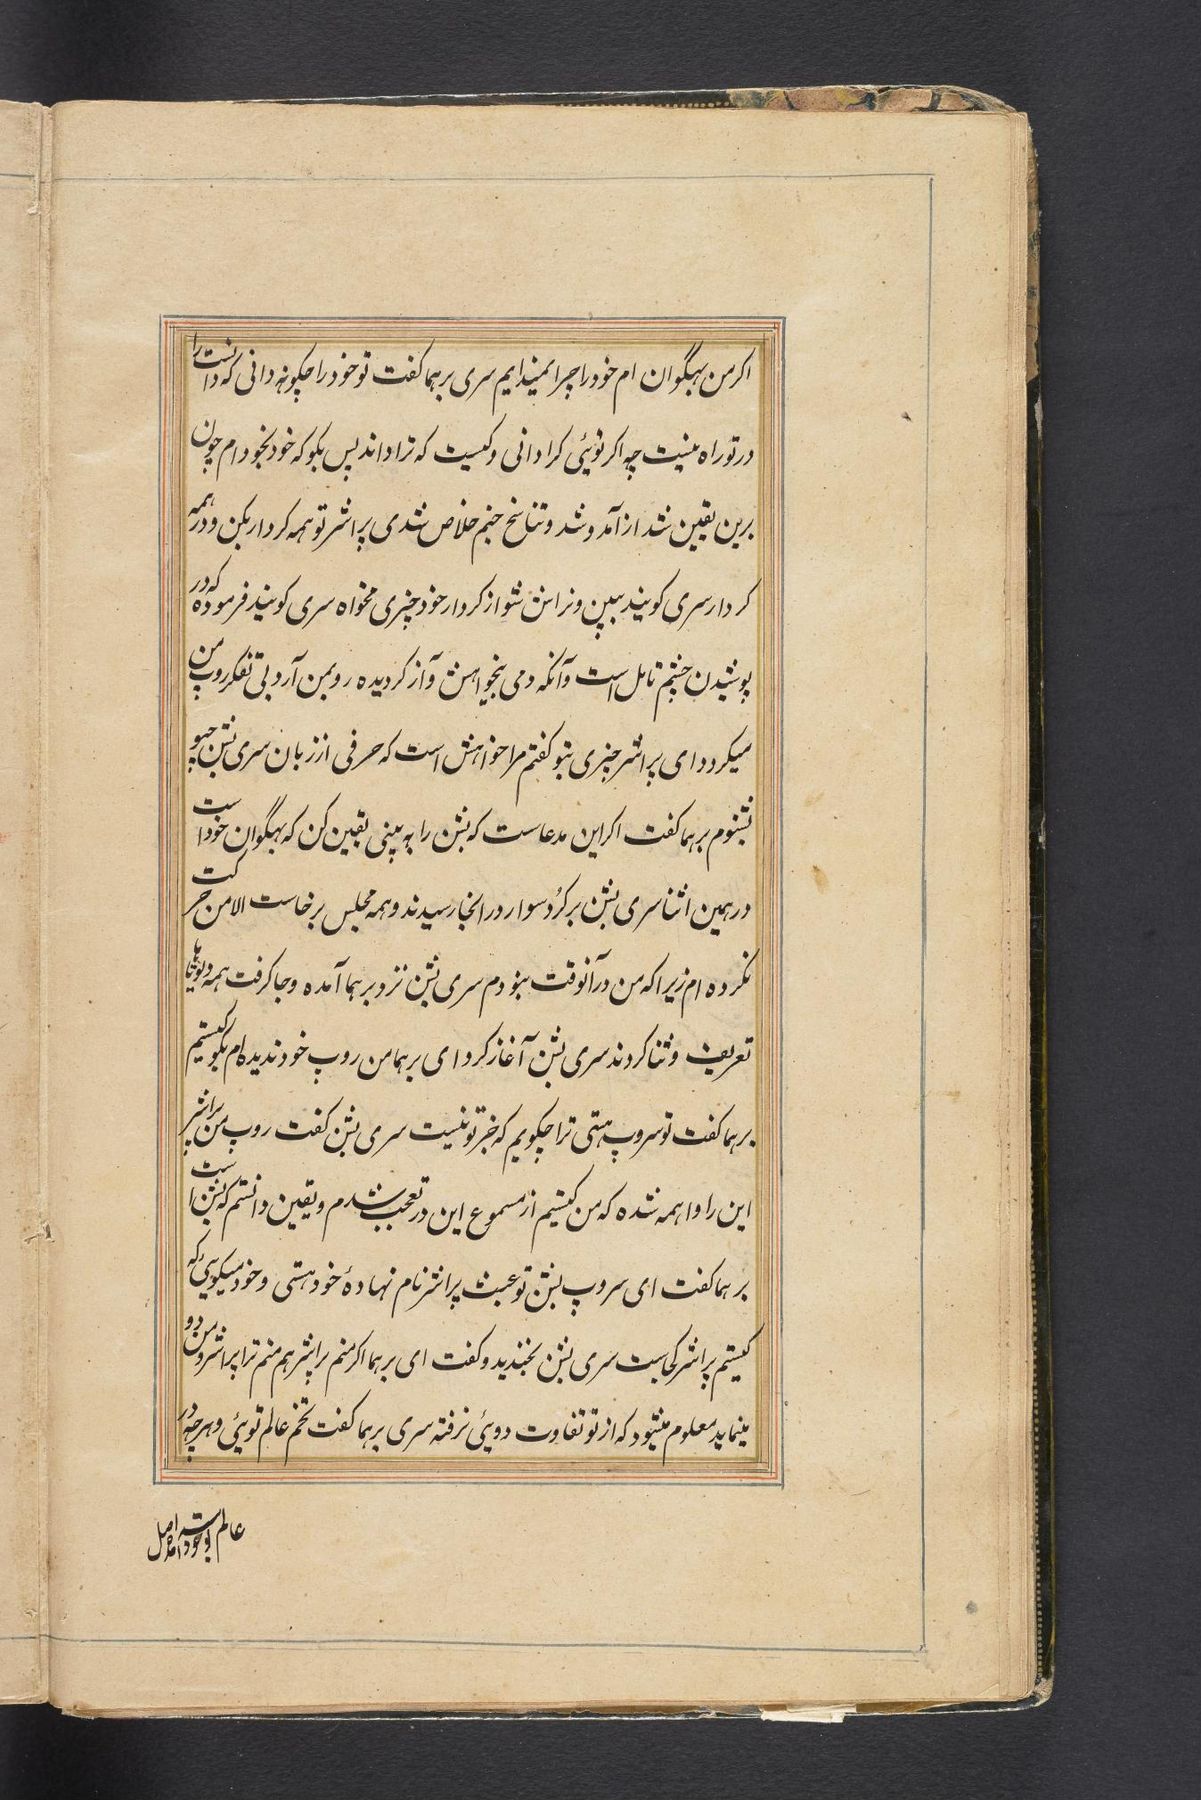 اکر من بهگوان ام خود را چرا نمیدانم سری برهما کفت تو خود را چکونه دانی که دانست را
در تو راه نیست چه اکر توئی کرا دانی و کیست که ترا داند پس بکو که خود بخود ام چون
برین یقین شد از آمد و شد و تناسخ جنم خلاص شدی پراشر تو همه کردار بکن و در همه
کردار سری کوبیند ببین و نراس شو از کردار خود چیزی مخواه سری کوبیند فرموده که در
پوشیدن چشم تامل است و آنکه دمی بیخواهش و آز کردیده رو بمن آرد بی تفکر روپ من
میکردد ای پراشر چیزی بتو کفتم مرا خواهش است که حرفی از زبان سری بشن جیو
بشنوم برهما کفت اکر این مدعاست که بشن را به بینی یقین کن که بهگوان خود است
در همین اثنا سری بشن بر کرد سوار در انجا رسیدند و همه مجلس برخاست الا من حرکت
نکرده ام زیرا که من در آنوقت نبودم سری بشن نزد برهما آمده و جا کرفت همه دیوتاها
تعریف و ثنا کردند سری بشن آغاز کرد ای برهما من روپ خود ندیده ام بکو کیستم
برهما کفت تو سروپ هستی ترا چکویم که خبر تو نیست سری بشن کفت روپ من پراشر
این را واهمه شده که من کیستم از مسموع این در تعجب شدم و یقین دانستم که بشن است
برهما کفت ای سروپ بشن تو عبث پراشر نام نهادهٔ خود هستی و خود میکویی که
کیستم پراشر کجاست سری بشن بخندید و کفت ای برهما اکر منم پراشر هم منم ترا پراشر و من دو
مینماید معلوم میشود که از تو تفاوت دوئی نرفته سری برهما کفت تخم عالم توئی و هر چه در
عالم بوجود آمده اصل